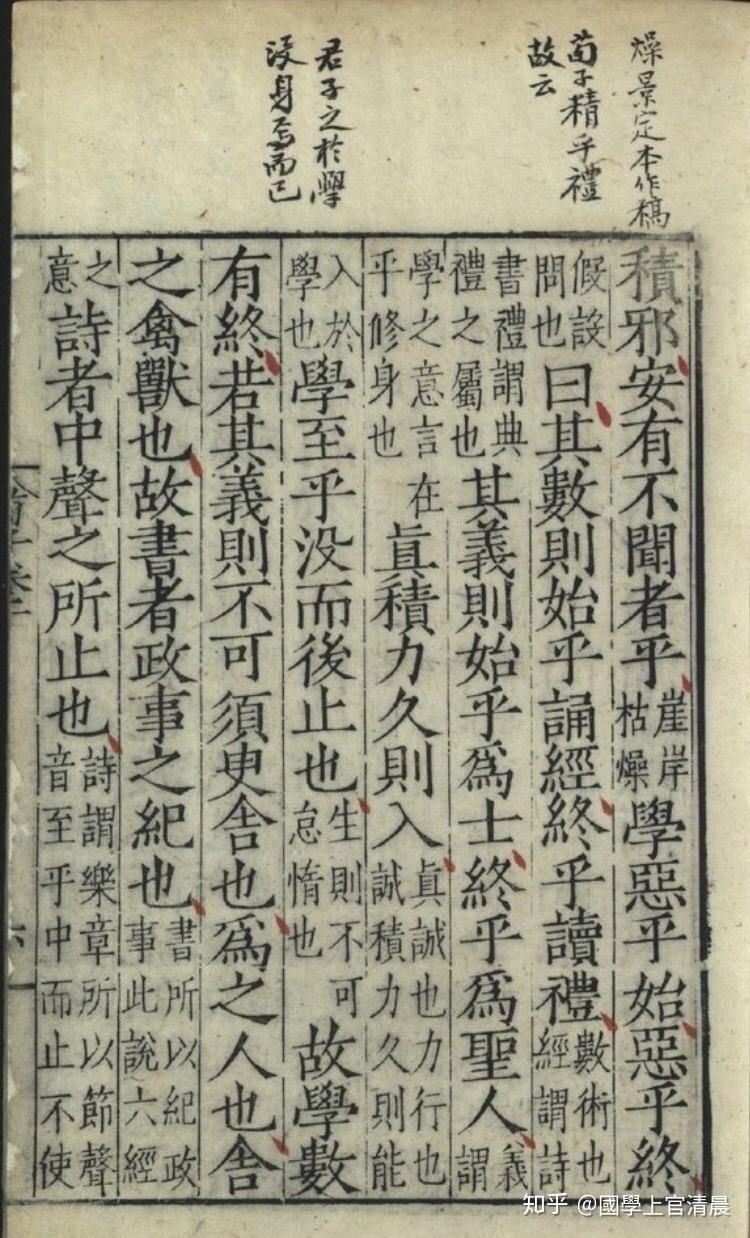 燥景定本作稿
荀子精乎禮
故云
君子之於學
没身焉而已
積邪安有不聞者乎崖岸枯燥學惡乎始惡乎終
假設問也曰其數則始乎誦經終乎讀禮數術也經謂詩
書禮謂典禮之屬也其義則始乎爲士終乎爲聖人義謂
學之意言在乎修身也眞積力久則入眞誠也力行也誠積力久則能
入於學也學至乎没而後止也生則不可怠惰也故學數
有終若其義則不可須臾舍也爲之人也舍
之禽獸也故書者政事之紀也書所以紀政事此說六經
之意詩者中聲之所止也詩謂樂章所以節聲音至乎中而止不使
知乎 @國學上官清晨